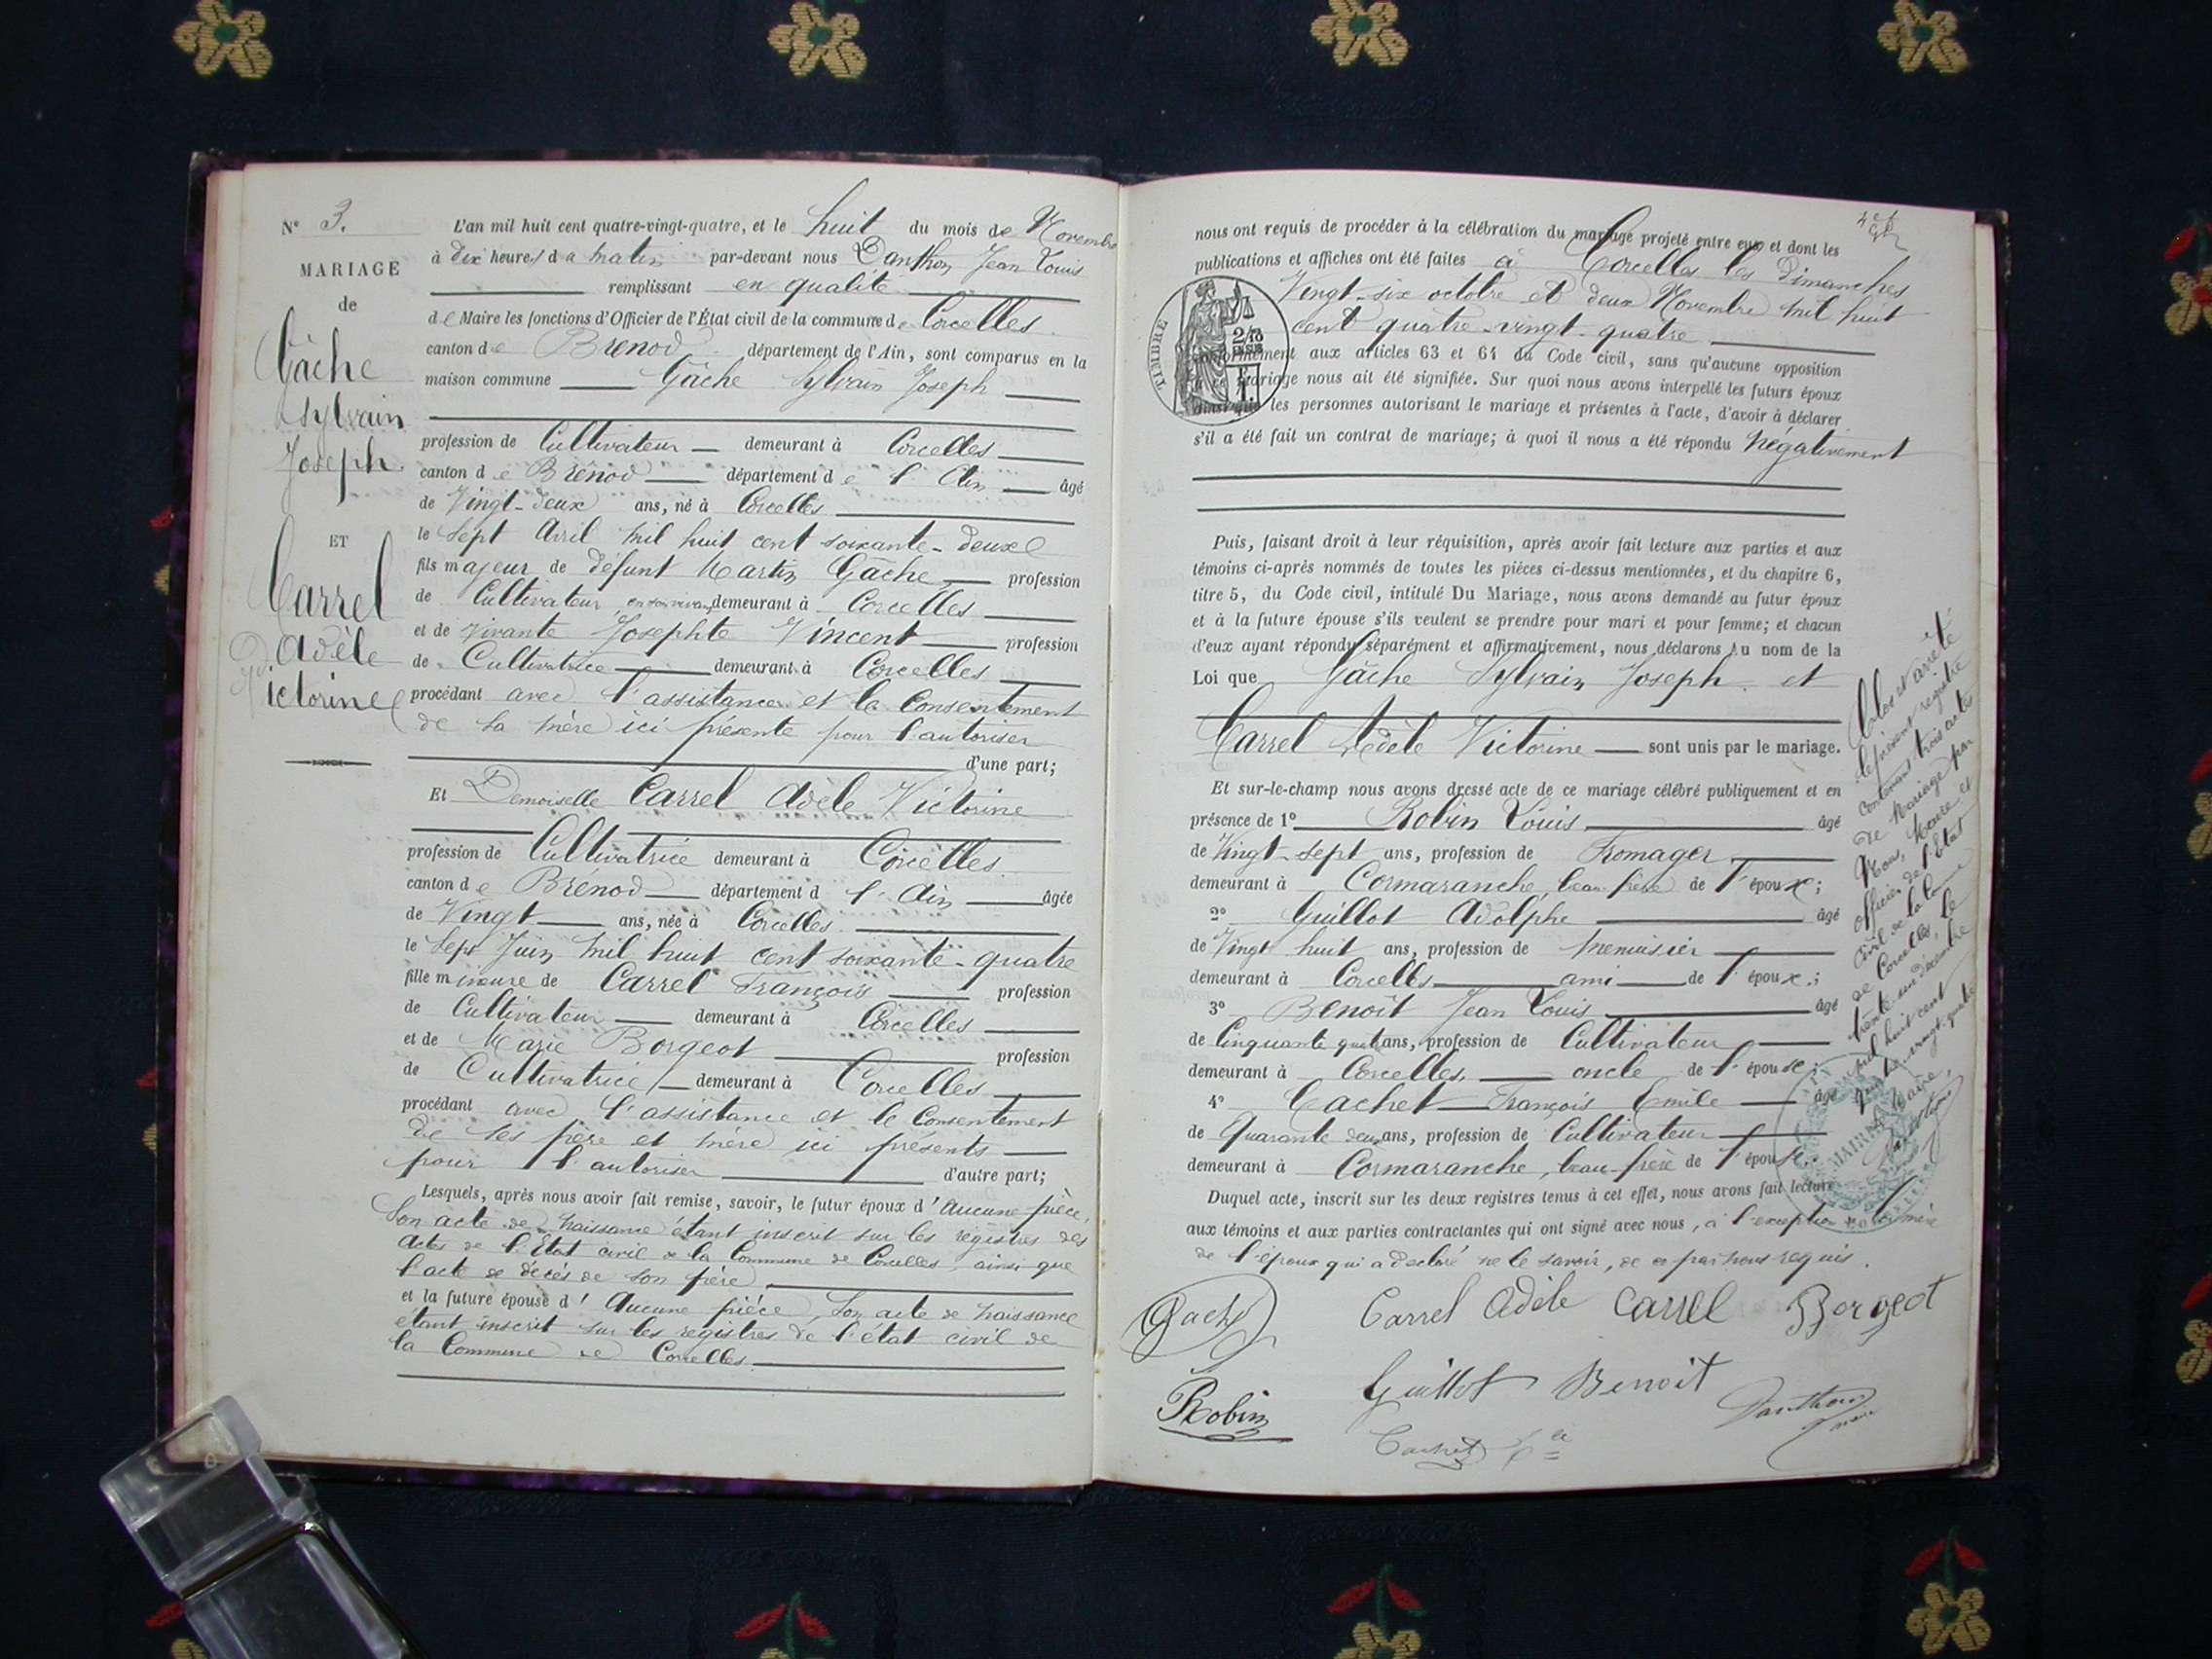 N° 3.
MARIAGE
de
Gâche
Sylvain
Joseph.
ET
Carrel
Adèle
Victorine
L'an mil huit cent quatre-vingt-quatre, et le huit du mois de Novembre
à dix heures du matin par-devant nous Danthon Jean Louis
remplissant en qualité
de Maire les fonctions d'Officier de l'État civil de la commune de Corcelles
canton de Brenod département de l'Ain, sont comparus en la
maison commune Gâche Sylvain Joseph
profession de Cultivateur demeurant à Corcelles
canton de Brénod département de l'Ain âgé
de Vingt-deux ans, né à Corcelles
le Sept Avril mil huit cent soixante-deux
fils majeur de défunt Martin Gâche profession
de Cultivateur en son vivant demeurant à Corcelles
et de vivante Josephte Vincent profession
de Cultivatrice demeurant à Corcelles
procédant avec l'assistance et le Consentement
de sa mère ici présente pour l'autoriser
d'une part;
Et Demoiselle Carrel Adèle Victorine
profession de Cultivatrice demeurant à Corcelles
canton de Brénod département d l'Ain âgée
de Vingt ans, née à Corcelles
le Sept Juin mil huit cent soixante-quatre
fille mineure de Carrel François profession
de Cultivateur demeurant à Corcelles
et de Marie Borgeot profession
de Cultivatrice demeurant à Corcelles
procédant avec l'assistance et le Consentement
de ses père et mère ici présents
pour l'autoriser d'autre part;
Lesquels, après nous avoir fait remise, savoir, le futur époux d'Aucune pièce,
Son acte de naissance étant inscrit sur les régistres des
actes de l'État civil de la Commune de Corcelles, ainsi que
l'acte de décès de son père
et la future épouse d'Aucune pièce, Son acte de naissance
étant inscrit sur les registres de l'état civil de
la Commune de Corcelles.
nous ont requis de procéder à la célébration du mariage projeté entre eux et dont les
publications et affiches ont été faites à Corcelles les Dimanches
Vingt-six octobre et deux Novembre mil huit
cent quatre-vingt-quatre
TIMBRE
conformément aux articles 63 et 64 du Code civil, sans qu'aucune opposition
à ce mariage nous ait été signifiée. Sur quoi nous avons interpellé les futurs époux
ainsi que les personnes autorisant le mariage et présentes à l'acte, d'avoir à déclarer
s'il a été fait un contrat de mariage; à quoi il nous a été répondu Négativement
Puis, faisant droit à leur réquisition, après avoir fait lecture aux parties et aux
témoins ci-après nommés de toutes les pièces ci-dessus mentionnées, et du chapitre 6,
titre 5, du Code civil, intitulé Du Mariage, nous avons demandé au futur époux
et à la future épouse s'ils veulent se prendre pour mari et pour femme; et chacun
d'eux ayant répondu séparément et affirmativement, nous déclarons Au nom de la
Loi que Gâche Sylvain Joseph et
Carrel Adèle Victorine sont unis par le mariage.
Et sur-le-champ nous avons dressé acte de ce mariage célébré publiquement et en
présence de 1° Robin Louis âgé
de Vingt-sept ans, profession de Fromager
demeurant à Cormaranche, beau-frère de l'époux;
2° Guillot Adolphe âgé
de Vingt huit ans, profession de Menuisier
demeurant à Corcelles ami de l'époux;
3° Benoit Jean Louis âgé
de Cinquante quatre ans, profession de Cultivateur
demeurant à Corcelles, oncle de l'épouse;
4° Cachet François Emile âgé
de Quarante deux ans, profession de Cultivateur
demeurant à Cormaranche, beau-frère de l'épouse.
Duquel acte, inscrit sur les deux registres tenus à cet effet, nous avons fait lecture
aux témoins et aux parties contractantes qui ont signé avec nous, à l'exception de la mère
de l'époux qui a déclaré ne le savoir, de ce par nous requis.
Gache Carrel Adèle Carrel Borgeot
Robin Guillot Benoit Danthon
maire
Cachet
Clos et arrêté
le présent registre
contenant trois actes
de Mariage par
Nous, Maire et
officier de l'État
civil de la Comne
de Corcelles, le
trente-un décembre
mil huit cent
quatre-vingt-quatre
Le Maire,
MAIRIE